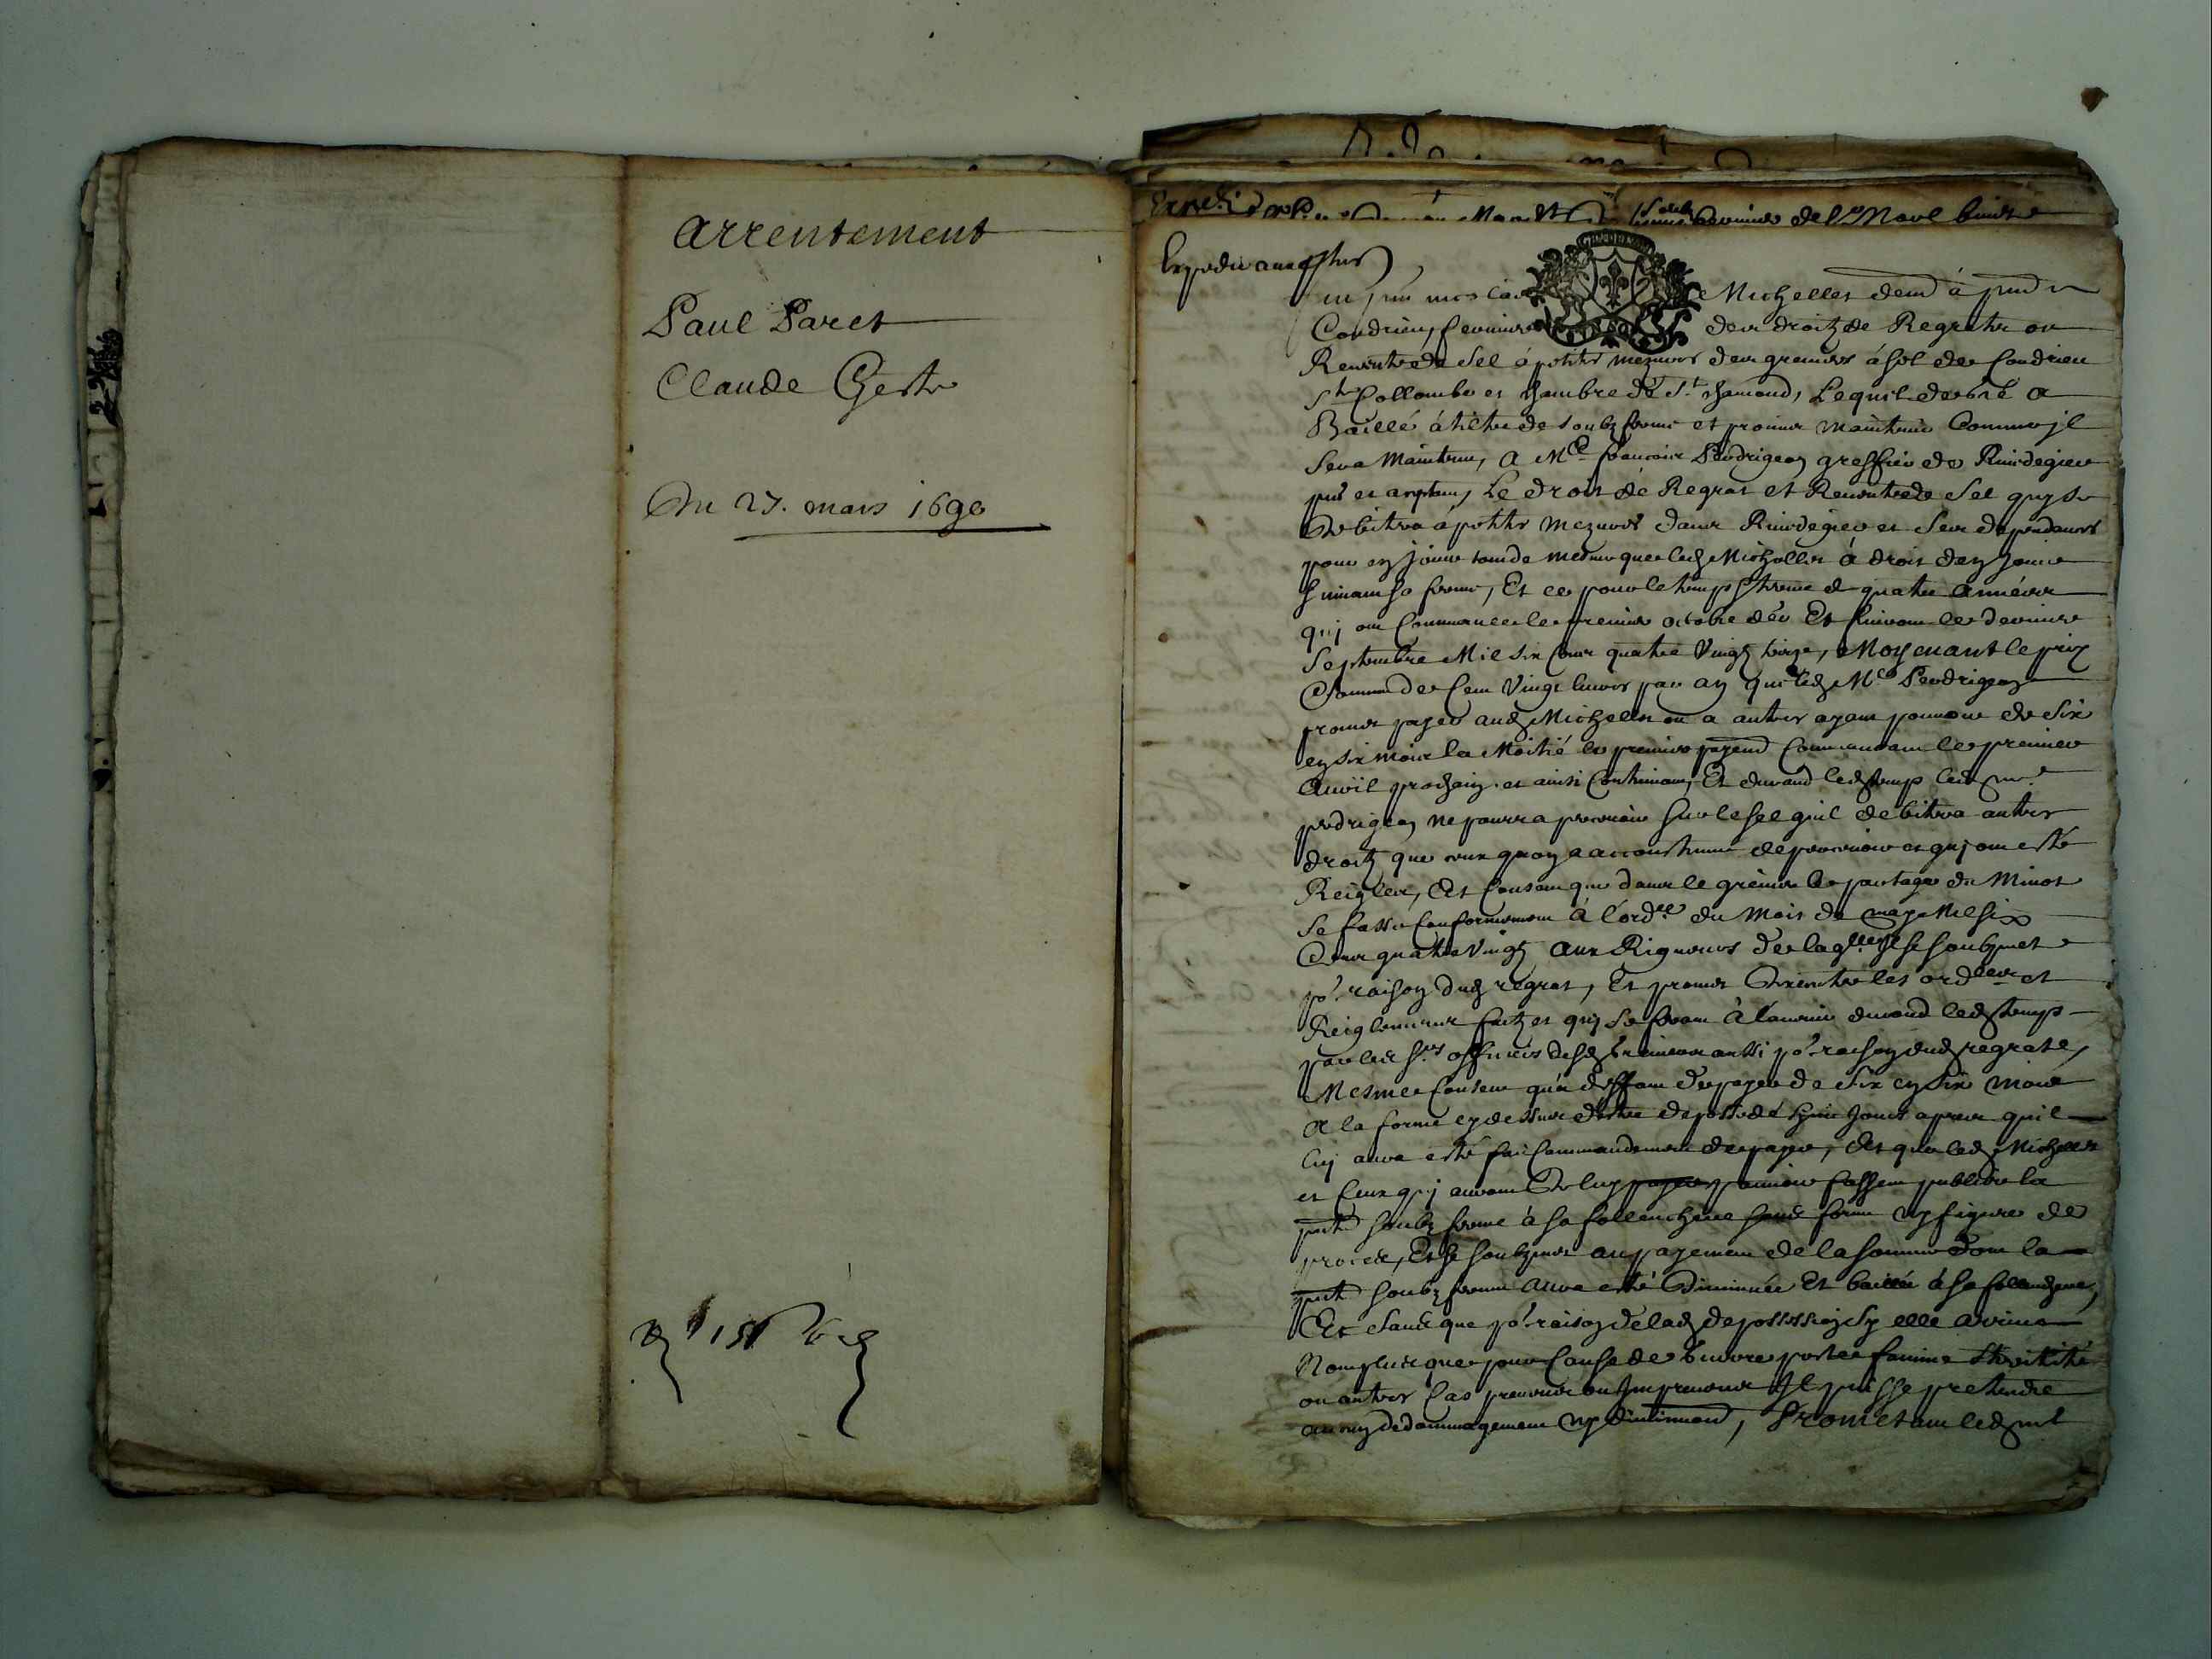 arrentement
Paul Paret
Claude Geste
Du 27. mars 1690
Expedie aux
Michelles dem.t à
Condrieu, fermier des droitz de Regratz ou
Reuente de Sel à petites mezures des greniers à sel de Condrieu
S.te Collombe et chambre de S.t chamond, Lequel de gré a
Baillé à tiltre de soubz ferme et promis maintenir Comme jl
sera Maintenu, a M.e francois Perdrigeon greffier de Riuedegier
pnt et acceptant, Le droit de Regrat et Reuente de Sel quy se
Debitera à petites Mezures dans Riuedegier et Ses dependances
pour en jouir tout de mesme que led Michelles à droit den jouir
suiuant sa ferme, Et ce pour le temps & terme de quatre années
quj ont Commencé le premier octobre der Et finiront le dernier
Septembre Mil six Cens quatre Vingtz treize, Moyenant le prix
& somme de Cent Vingt liures par an que led M.e Perdrigeon
promet payer aud Michelles ou a autres ayant pouuoir de Six
en six mois la Moitié le premier payem.t Commencant le premier
Auril prochain et ainsi Continuant, Et durand led temps led m.e
perdrigeon ne pourra perceuoir sur le sel quil debitera autres
droitz que ceux quon a accoustumé de perceuoir et quj ont esté
Reigles, Et Consent que dans le grenier le partage du Minot
se fasse Conformement à lord.ce du Mois de may Mil six
Cens quatre Vingtz aux Rigueurs de laq.lle jl se soubzmet
po.r raison dud regrat, Et promet dexecuter les ord.ces et
Reiglemens faitz et quj se feront à lauenir durand led temps
par les s.rs officiers desd greniers aussi po.r raison dud regrat,
Mesme Consent qu'a deffaut de payer de six en six mois
a la forme cy dessus destre depossedé huit jours apres quil
luj aura esté fait Commandement de payer, Et que led Michelles
et Ceux quj auront de luy pouuoir fassent publier la
pnte soubz ferme à sa follenchere sans forme ny figure de
proces, Et se soubzmet au payement de la somme dont la
pnte soubz ferme aura esté Diminuée Et baillée à sa follenchere,
Et sans que po.r raison de lad depossession sy elle arriue
Nomplus que pour Cause de Guerre peste famine sterilité
ou autres Cas preueus ou Jmpreueus Jl puisse pretendre
aucung dedommagement ny diminuon, Prometant led m.e